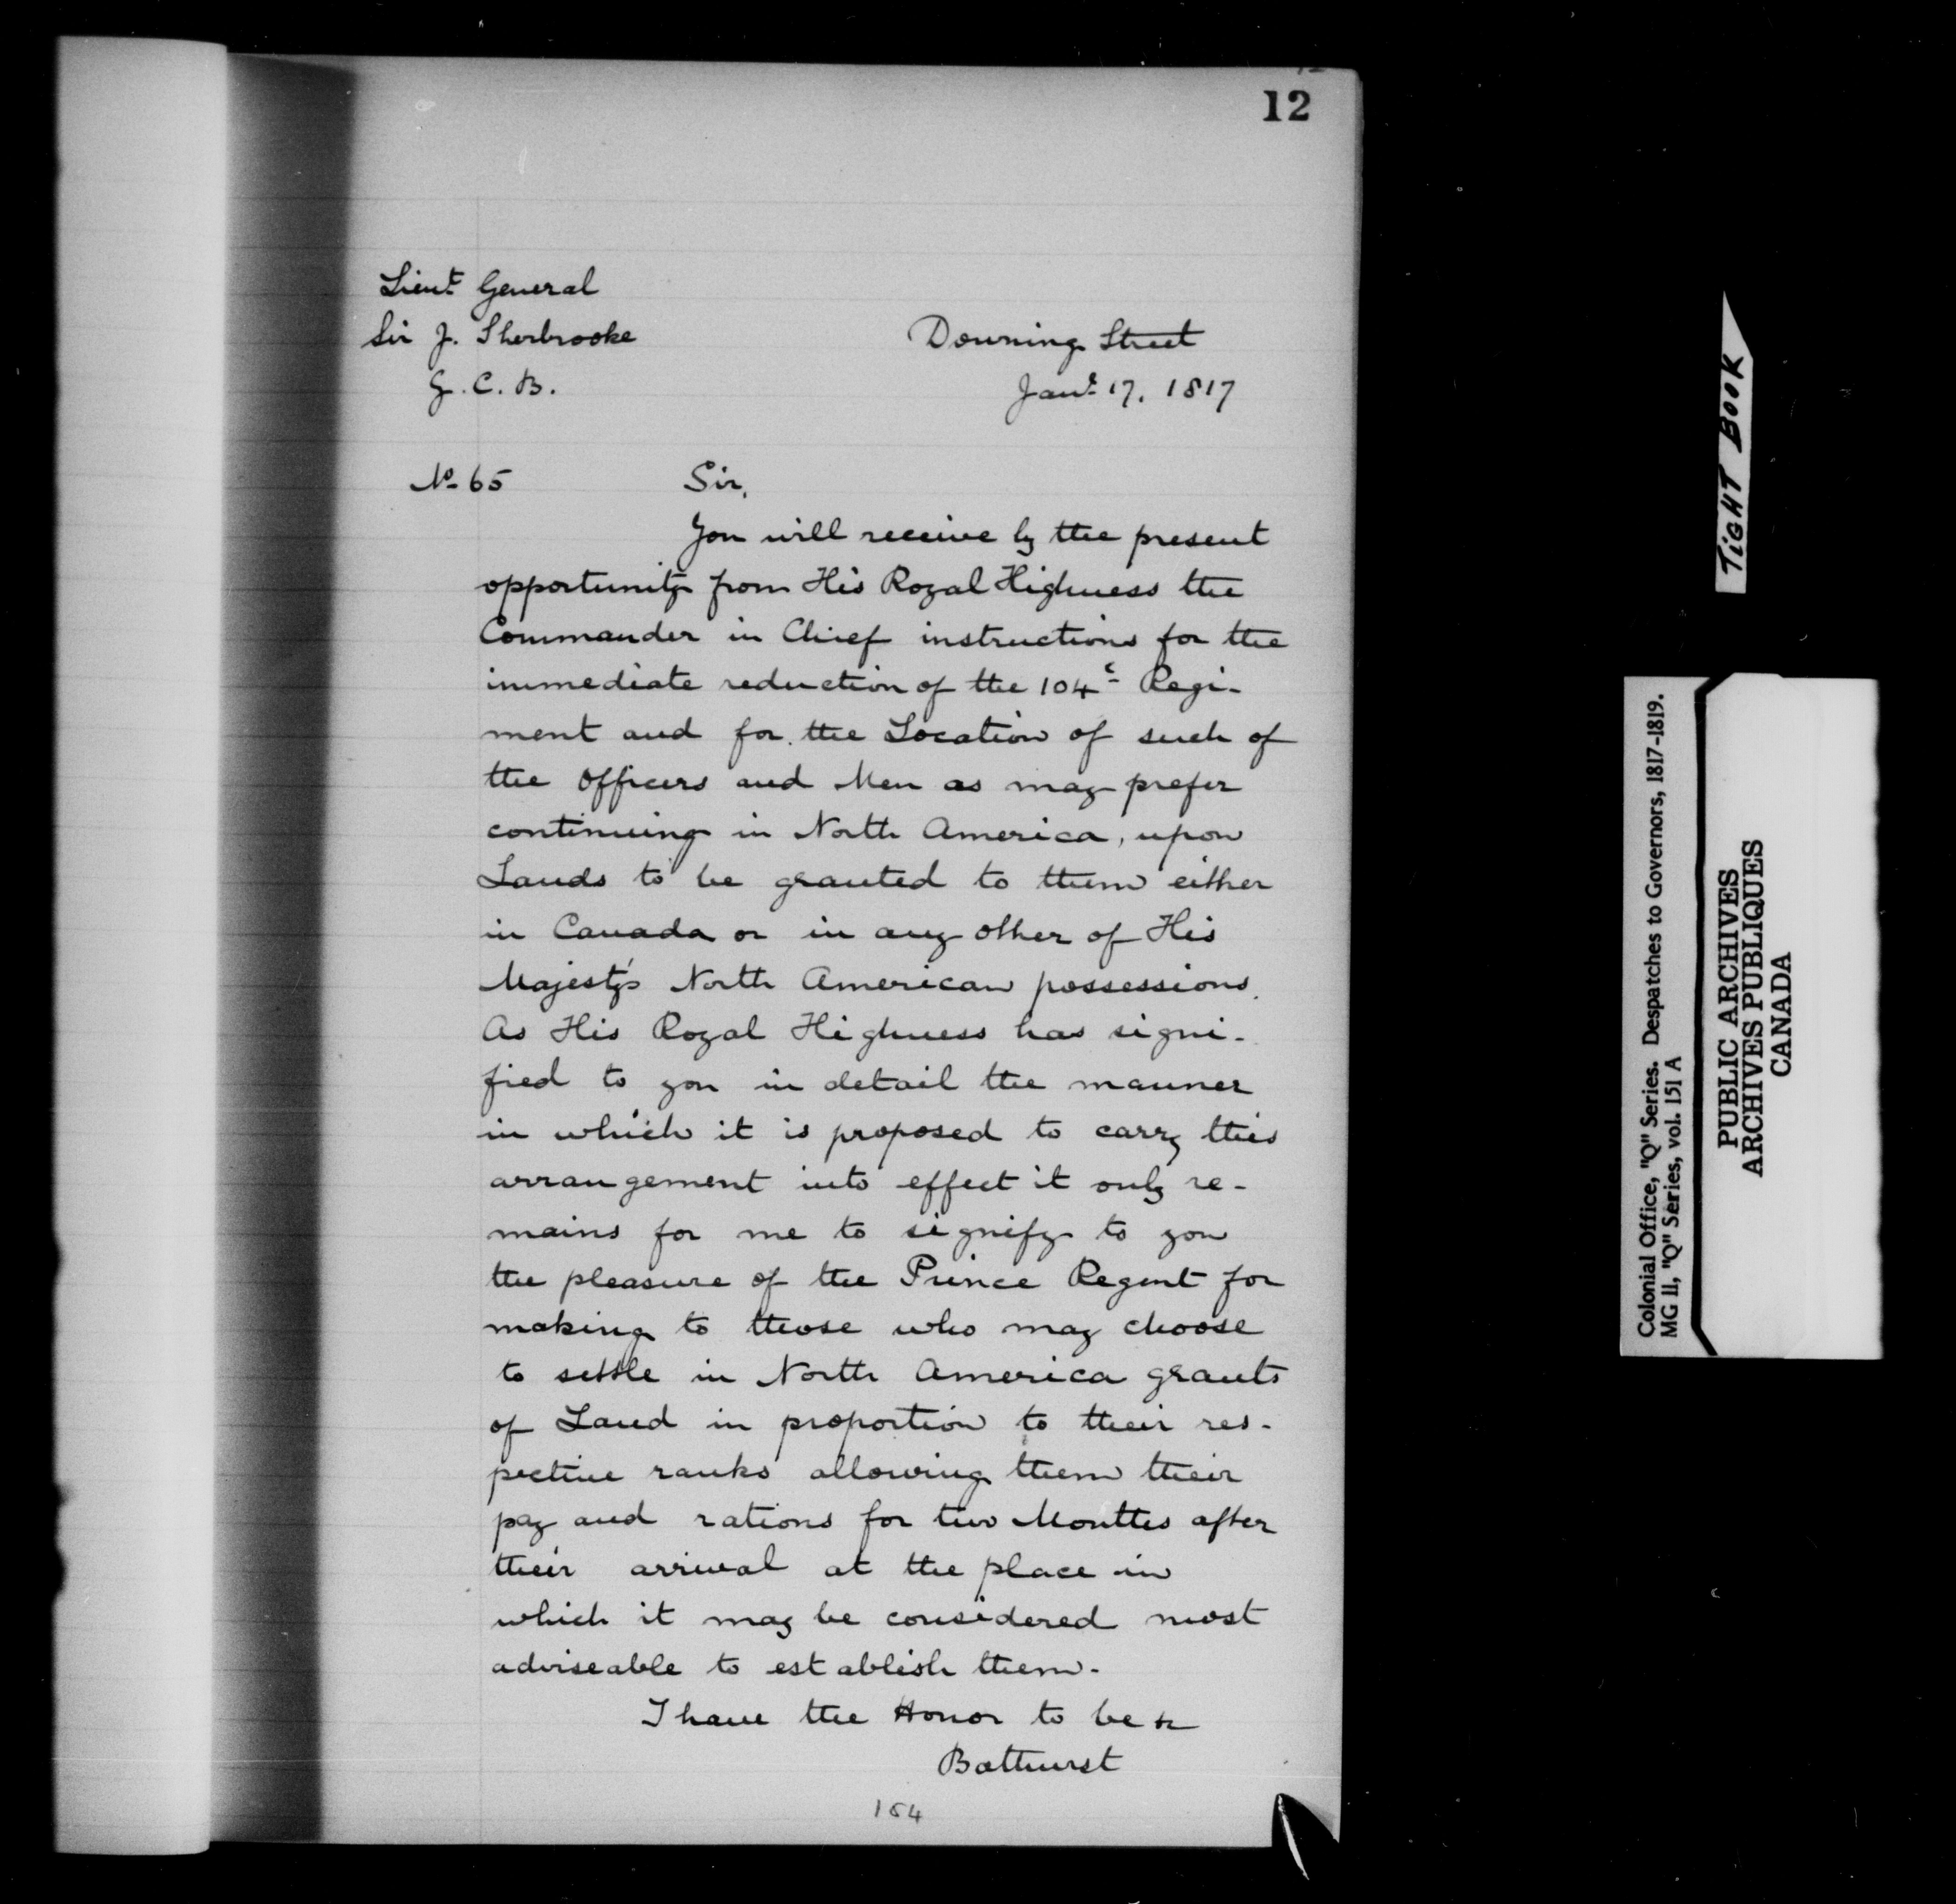 12
Lieut General
Sir J. Sherbrooke
G. C. B.
Downing Street
Jany 17. 1817
No 65
Sir,
You will receive by the present
opportunity from His Royal Highness the
Commander in Chief instructions for the
immediate reduction of the 104th Regi-
ment and for the Location of such of
the Officers and Men as may prefer
continuing in North America, upon
Lands to be granted to them either
in Canada or in any other of His
Majesty's North American possessions.
As His Royal Highness has signi-
fied to you in detail the manner
in which it is proposed to carry this
arrangement into effect it only re-
mains for me to signify to you
the pleasure of the Prince Regent for
making to those who may choose
to settle in North America grants
of Land in proportion to their res-
pective ranks allowing them their
pay and rations for two Months after
their arrival at the place in
which it may be considered most
adviseable to establish them.
I have the Honor to be &c
Bathurst
154
TIGHT BOOK
Colonial Office, "Q" Series. Despatches to Governors, 1817-1819.
MG 11, "Q" Series, vol. 151 A
PUBLIC ARCHIVES
ARCHIVES PUBLIQUES
CANADA